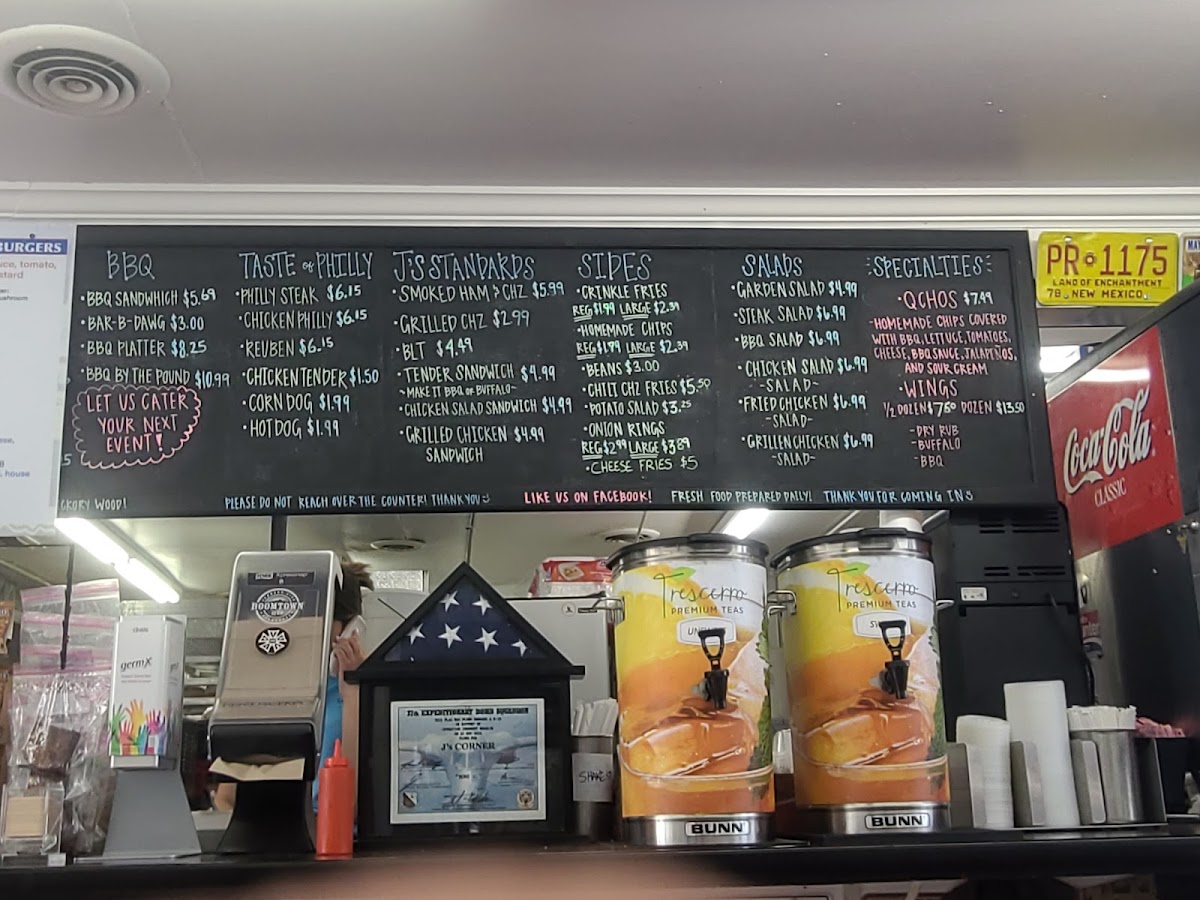 BURGERS
uce, tomato,
stard
BBQ
•BBQ SANDWHICH $5.69
•BAR-B-DAWG $3.00
•BBQ PLATTER $8.25
•BBQ BY THE POUND $10.99
LET US CATER
YOUR NEXT
EVENT!
TASTE of PHILLY
•PHILLY STEAK $6.15
•CHICKEN PHILLY $6.15
•REUBEN $6.15
•CHICKEN TENDER $1.50
•CORN DOG $1.99
•HOT DOG $1.99
J'S STANDARDS
•SMOKED HAM & CHZ $5.99
•GRILLED CHZ $2.99
•BLT $4.49
•TENDER SANDWICH $4.99
~MAKE IT BBQ or BUFFALO~
•CHICKEN SALAD SANDWICH $4.99
•GRILLED CHICKEN $4.99
SANDWICH
SIDES
•CRINKLE FRIES
REG $1.99 LARGE $2.39
•HOMEMADE CHIPS
REG $1.79 LARGE $2.39
•BEANS $3.00
•CHILI CHZ FRIES $5.50
•POTATO SALAD $3.25
•ONION RINGS
REG $2.99 LARGE $3.89
•CHEESE FRIES $5
SALADS
•GARDEN SALAD $4.99
•STEAK SALAD $6.99
•BBQ SALAD $6.99
•CHICKEN SALAD $6.99
~SALAD~
•FRIED CHICKEN $6.99
~SALAD~
•GRILLEN CHICKEN $6.99
~SALAD~
SPECIALTIES
•QCHOS $7.49
-HOMEMADE CHIPS COVERED
WITH BBQ, LETTUCE, TOMATOES,
CHEESE, BBQ SAUCE, JALAPEÑOS,
AND SOUR CREAM
•WINGS
1/2 DOZEN $7.60 DOZEN $13.50
-DRY RUB
-BUFFALO
-BBQ
CKORY WOOD!
PLEASE DO NOT REACH OVER THE COUNTER! THANK YOU
LIKE US ON FACEBOOK!
FRESH FOOD PREPARED DAILY!
THANK YOU FOR COMING IN
PR 1175
LAND OF ENCHANTMENT
78 NEW MEXICO
Coca-Cola
CLASSIC
house
germX
DOOMTOWN
37th EXPEDITIONARY BOMB SQUADRON
J's CORNER
SHAKE
Trescerro
PREMIUM TEAS
BUNN
Trescerro
PREMIUM TEAS
BUNN